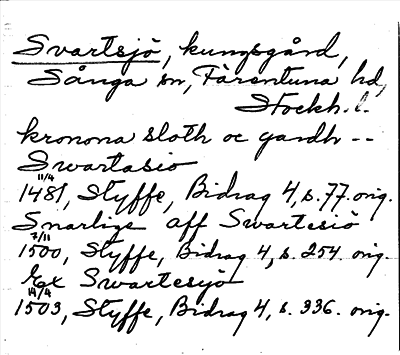 Svartsjö, kungsgård,
Sånga sn, Färentuna hd,
Stockh. l.
kronona sloth oc gardh --
Swartasio
11/4
1481, Styffe, Bidrag 4, s. 77. orig.
Snarlige aff Swartesiö
7/11
1500, Styffe, Bidrag 4, s. 254. orig.
Ex Swartesyö
14/4
1503, Styffe, Bidrag 4, s. 336. orig.